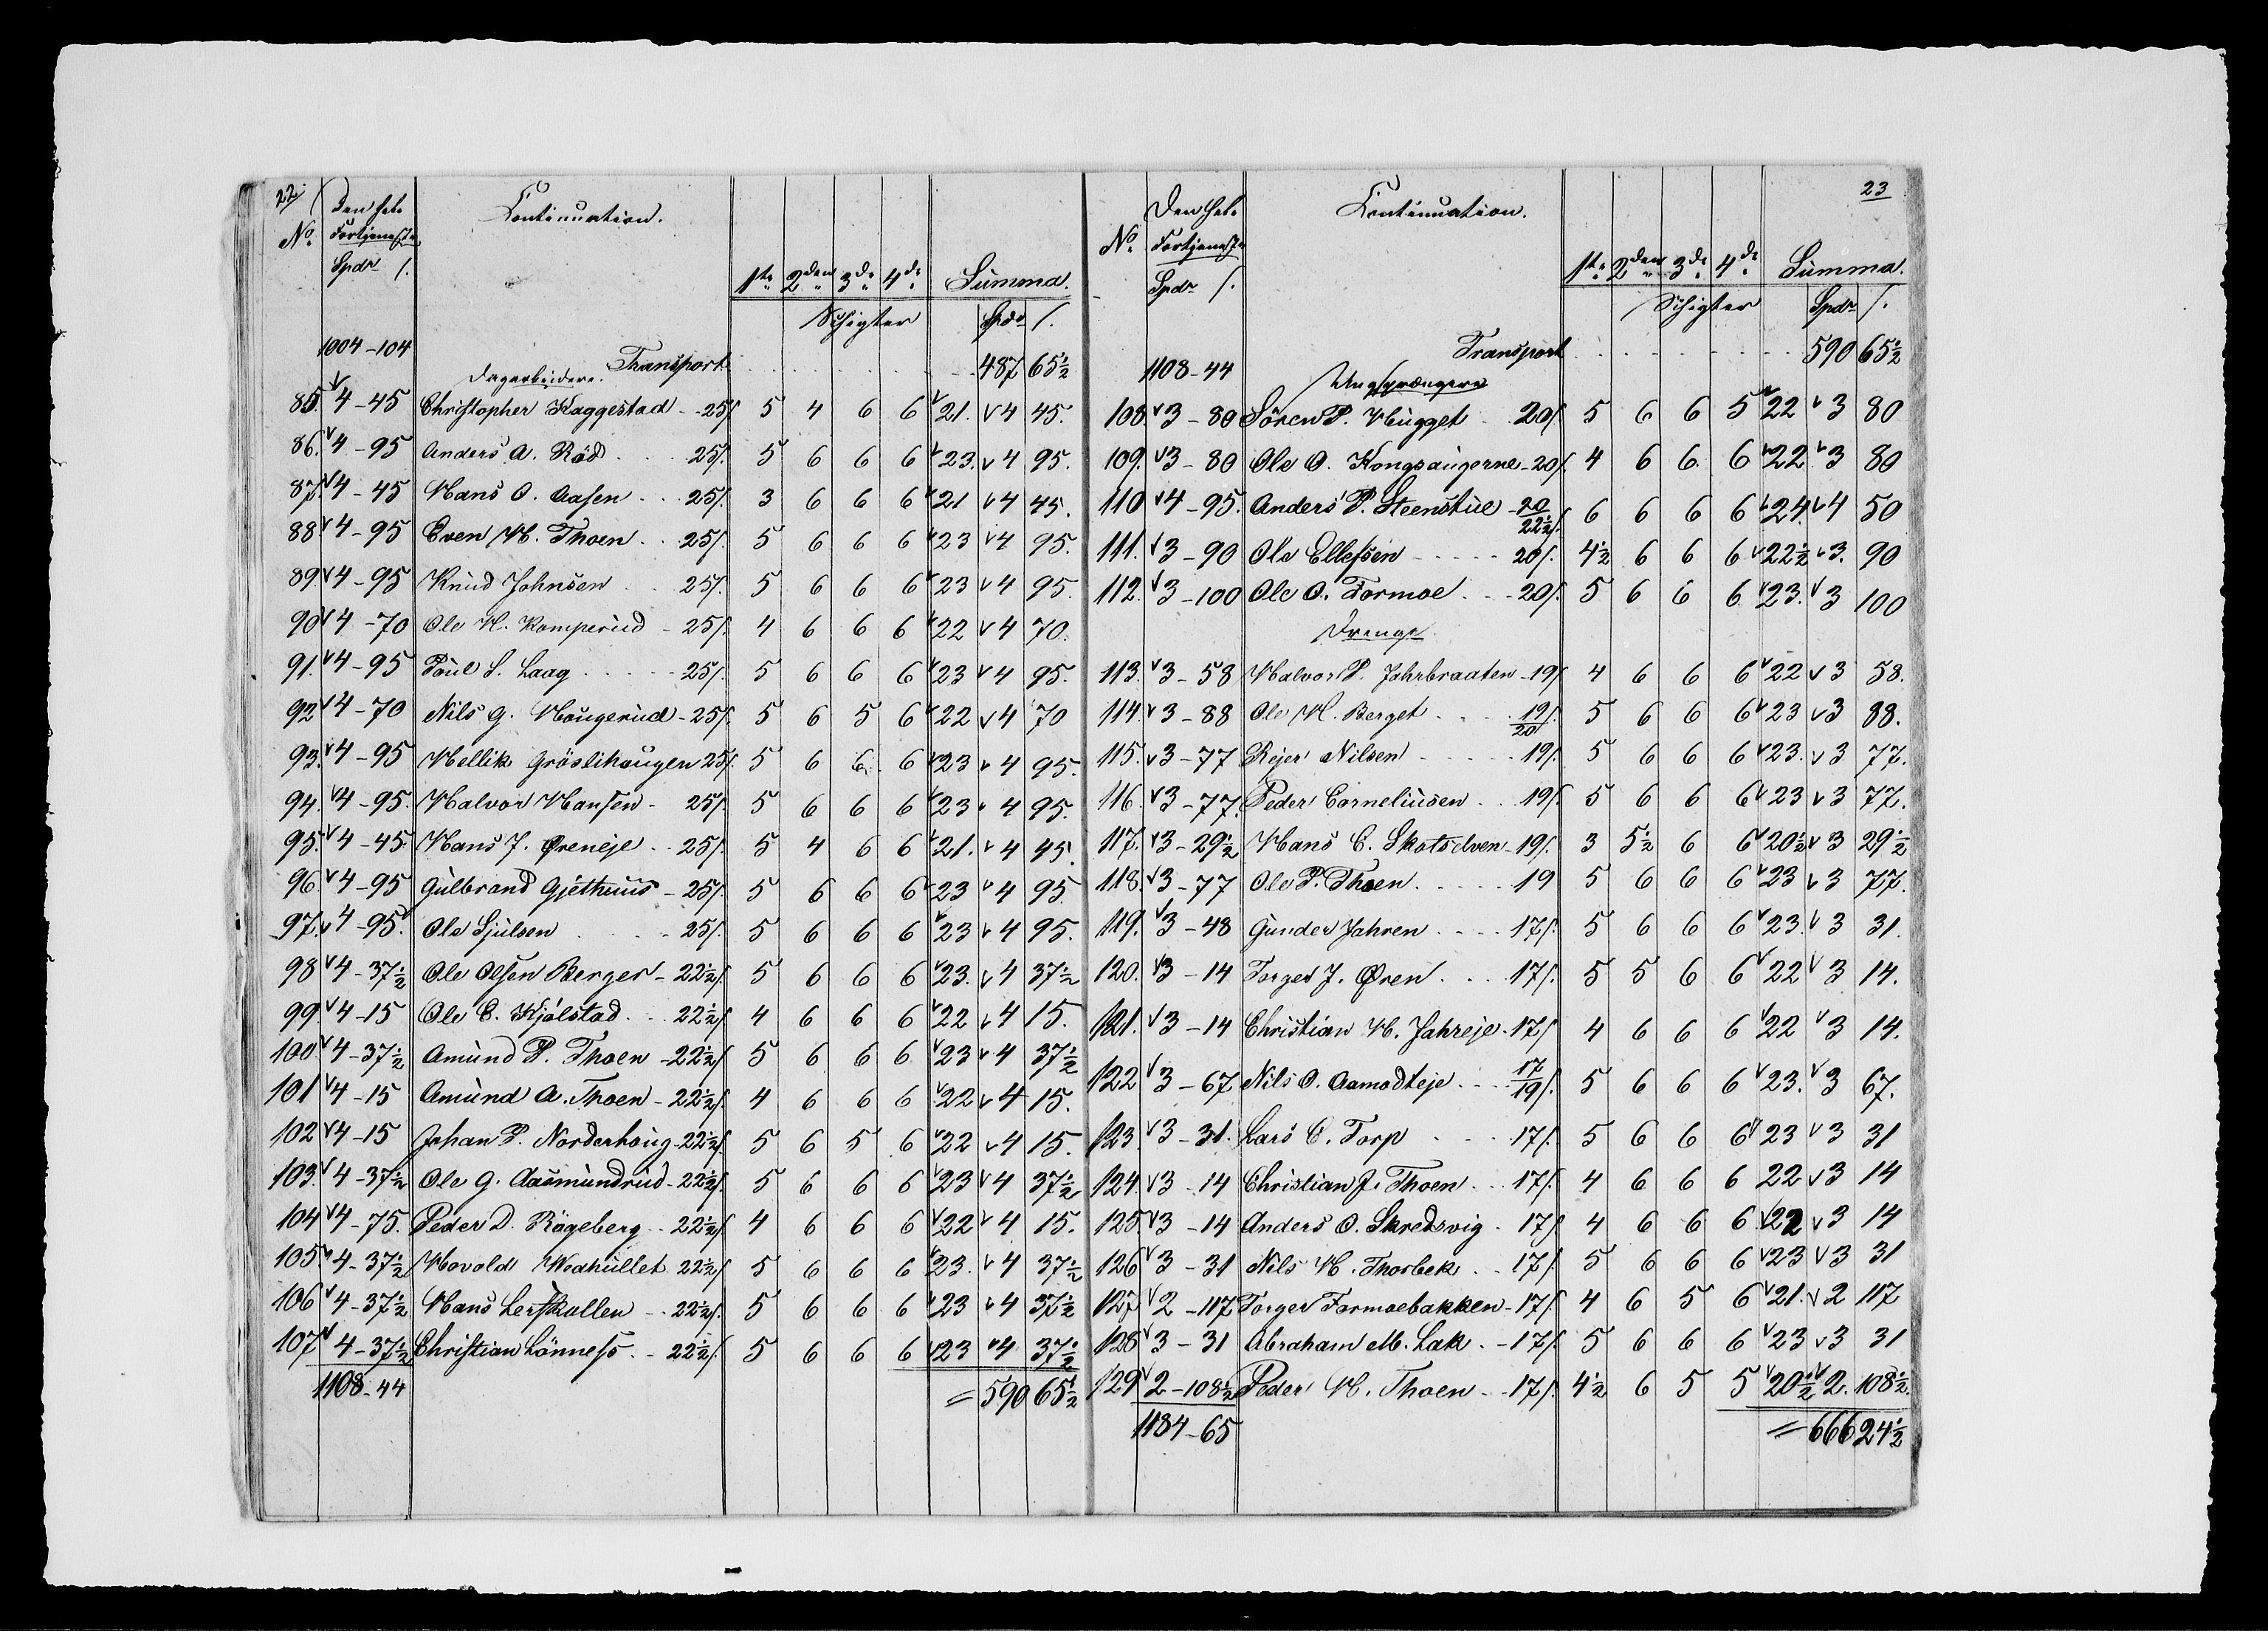 22.
Den hele Continuation.
No. Fortjeneste
Spdr ſ. 1ste 2den 3de 4de Summa.
Schigter Spdr ſ.
1004-104 Transport 487 65½
Dagarbeidere.
85. 4-45 Christopher Kaggestad - 25ſ. 5 4 6 6 21. 4 45.
86. 4-95 Anders A. Röd . . 25ſ. 5 6 6 6 23. 4 95.
87. 4-45 Hans O. Aasen . . 25ſ. 3 6 6 6 21 4 45.
88 4-95 Even H. Thoen . . 25ſ. 5 6 6 6 23 4 95.
89 4-95 Knud Johnsen . . 25ſ. 5 6 6 6 23 4 95.
90 4-70 Ole H. Komperud - 25ſ. 4 6 6 6 22 4 70.
91. 4-95 Poul S. Laag . . . . 25ſ. 5 6 6 6 23 4 95.
92 4-70 Nils G. Hougerud - 25ſ. 5 6 5 6 22 4 70
93. 4-95 Hellik Gröslihougen 25ſ. 5 6 6. 6 23 4 95.
94. 4-95. Halvor Hansen - 25ſ. 5 6 6 6 23 4 95.
95. 4-45 Hans J. Øreneje . . 25ſ. 5 4 6 6 21. 4 45.
96 4-95 Gulbrand Gjethuus - 25ſ. 5 6 6 6 23 4 95.
97. 4-95. Ole Sjulsen . . 25ſ. 5 6 6 6 23 4 95.
98 4-37½ Ole Olsen Berger - 22½ſ. 5 6 6 6 23. 4 37½
99. 4-15 Ole C. Kjölstad . . 22½ſ 4 6 6 6 22 4 15.
100 4-37½ Amund P. Thoen - 22½ſ 5 6 6 6 23 4 37½
101 4-15 Amund A. Thoen - 22½ſ. 4 6 6 6 22 4 15.
102 4-15 Johan P. Norderhoug - 22½ſ. 5 6 5 6 22 4 15.
103. 4-37½ Ole G. Aasmundrud - 22½ſ. 5 6 6 6 23 4 37½
104 4-75. Peder D. Rögeberg . . 22½ſ 4 6 6 6 22 4 15.
105 4-37½ Hovold Wedhullet 22½ſ 5 6 6 6 23. 4 37½
106 4-37½ Hans Lerskallen . . 22½ſ. 5 6 6 6 23 4 37½
107 4-37½ Christian Lönness . - 22½ſ. 5 6 6 6 23 4 37½
1108-44 = 590 65½
23
Den hele Continuation.
No. Fortjeneste
Spdr ſ. 1ste 2den 3de 4de Summa.
Schigter Spdr ſ.
Transport 590 65½
1108-44
108. 3-80 Sören P. Hugget . . 20ſ. 5 6 6 5 22 3 80
109. 3-80 Ole O. Kongsaugerne - 20ſ 4 6 6. 6 22. 3 80
110 4-95. Anders P. Steenstue - 20/22½ſ. 6 6 6 6 24. 4 50
111. 3-90 Ole Ellefsen - - - - 20ſ. 4½ 6 6 6 22½ 3. 90
112. 3-100 Ole O. Formoe . - - 20ſ. 5 6 6 6 23. 3 100
Drenge
113. 3-58 Halvor P. Jahrbraaten - 19ſ 4 6 6 6 22 3 58.
114. 3-88 Ole H. Berget . . . 19/20ſ. 5 6 6 6 23 3 88.
115. 3-77 Rejer Nilsen . . . . 19ſ. 5 6 6 6 23. 3 77.
116. 3-77. Peder Corneliusen . . 19ſ. 5 6 6 6 23 3 77.
117. 3-29½ Hans C. Skotselven - 19ſ. 3 5½ 6 6 20½ 3 29½
118. 3-77 Ole P. Thoen . . . . 19 5 6 6 6 23 3 77.
119. 3-48 Gunder Jahren . . . . 17ſ. 5 6 6 6 23. 3 31.
120. 3-14 Torger J. Øren . . . 17ſ. 5 5 6 6 22 3 14.
121. 3-14 Christian H. Jahreje - 17ſ 4 6 6 6 22 3 14.
122 3-67. Nils O. Aamodteje . . 17/19ſ. 5 6 6 6 23. 3 67.
123. 3-31. Lars C. Torp . . . . 17ſ. 5 6 6 6 23 3 31
124. 3-14 Christian J. Thoen . . 17ſ. 4 6 6 6 22 3 14
125. 3-14 Anders O. Skredsvig . 17ſ 4 6 6 6 22 3 14
126 3-31 Nils H. Thorbek . . 17ſ 5 6 6 6 23 3 31
127 2-117 Torger Formoebakken - 17ſ. 4 6 5 6 21. 2 117
128 3-31 Abraham M. Lak . - 17ſ. 5 6 6 6 23 3 31
129 2-108½ Peder H. Thoen . - 17ſ. 4½ 6 5 5 20½ 2. 108½.
1184-65 = 666 24½